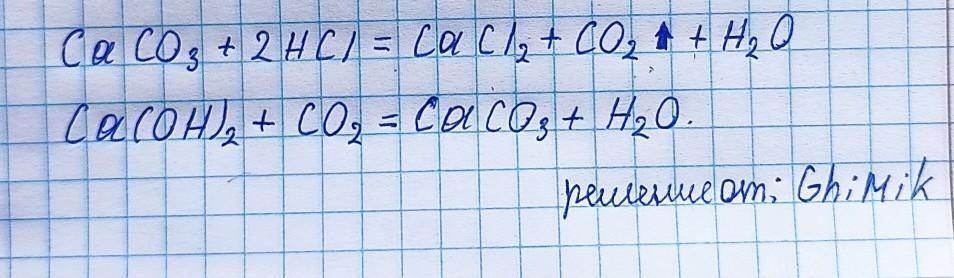 CaCO₃ + 2HCl = CaCl₂ + CO₂ ↑ + H₂O
Ca(OH)₂ + CO₂ = CaCO₃ + H₂O.
решение от: GhiMik